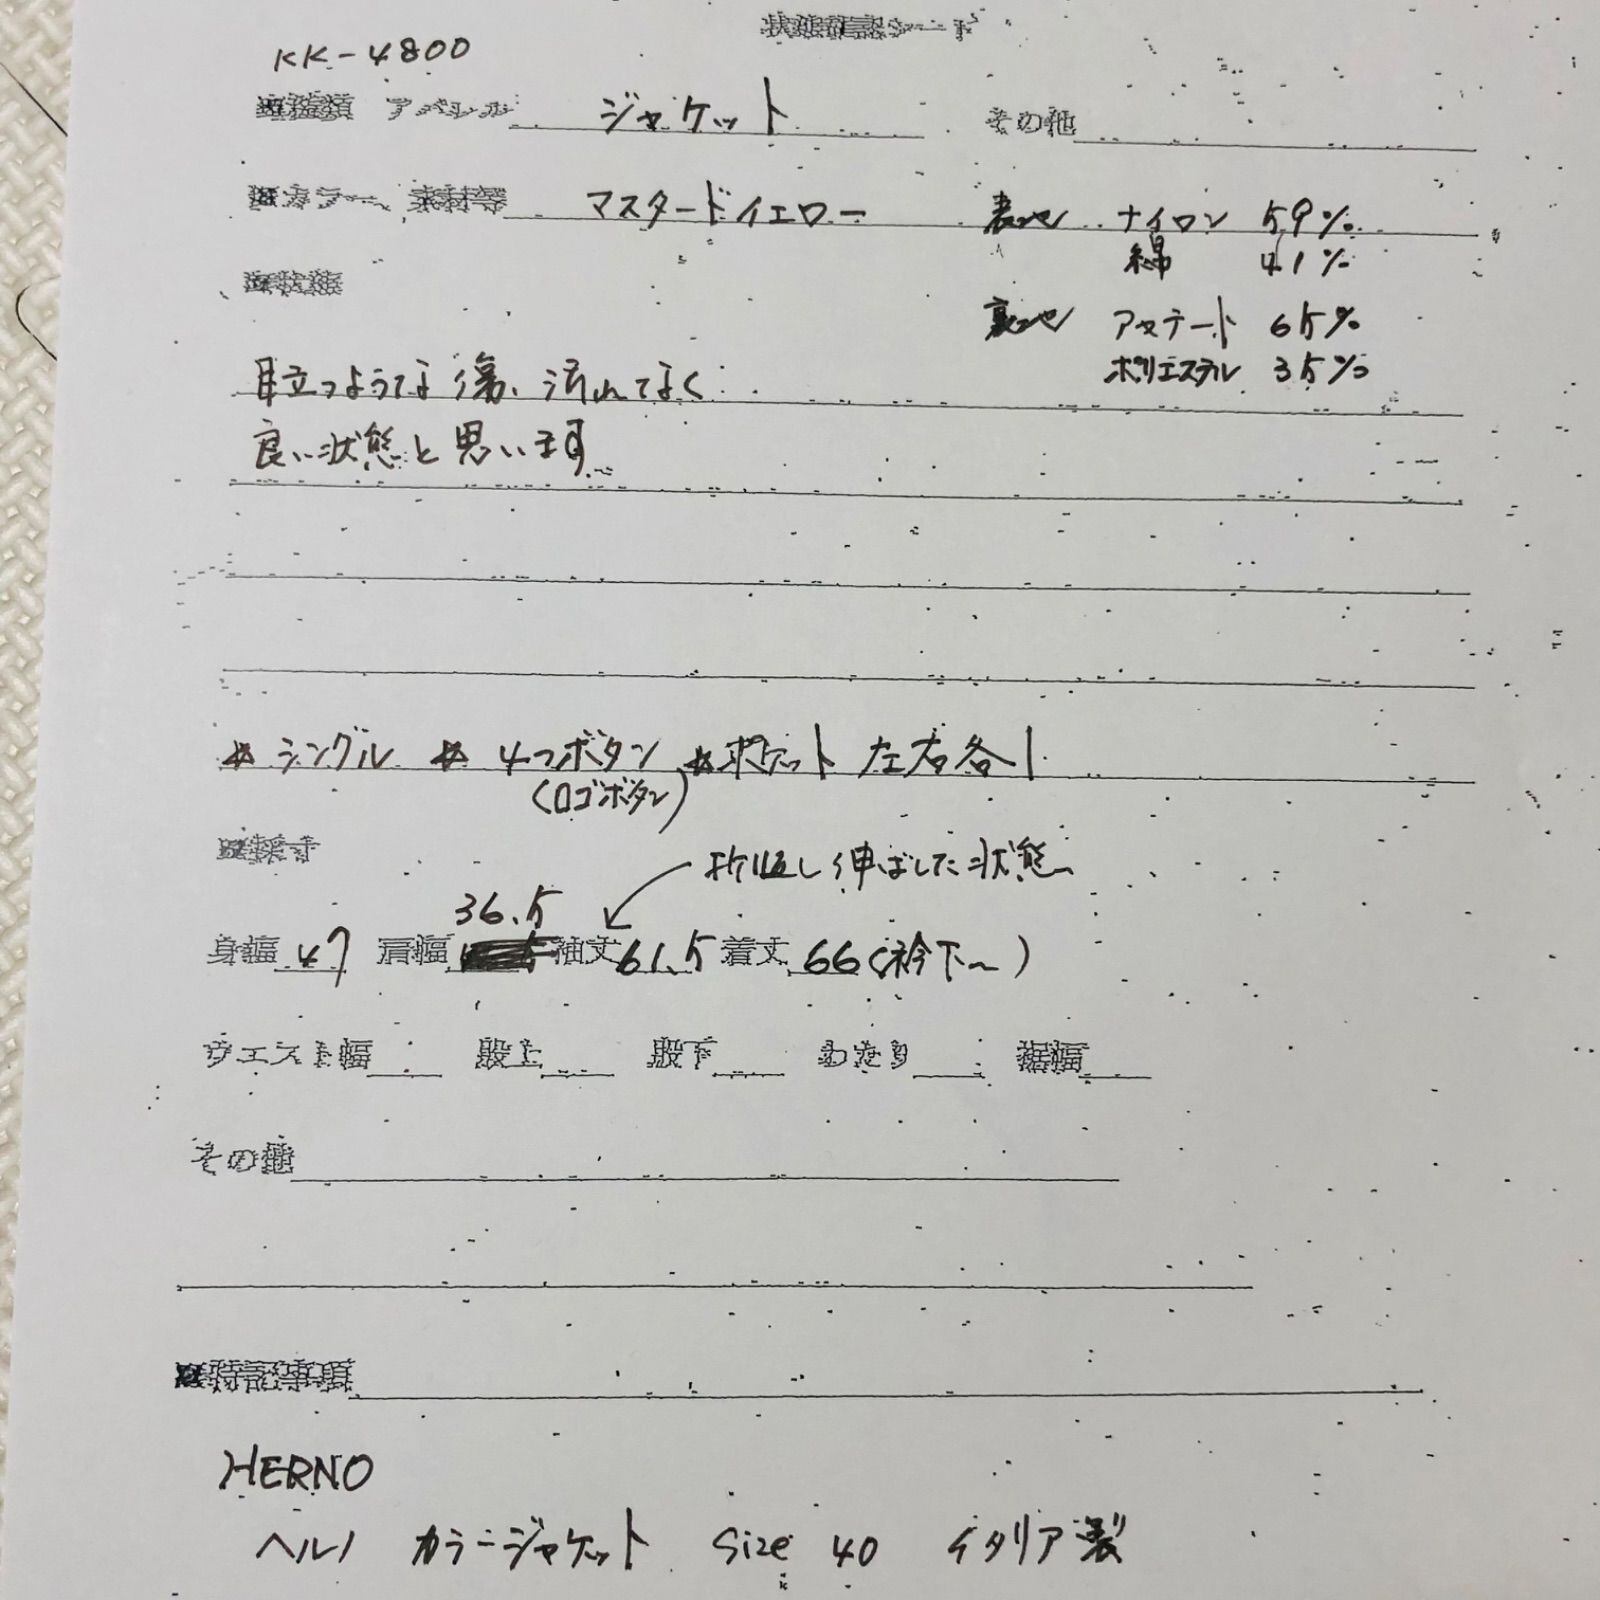 状態確認シート
KK-4800
■種類 アパレル ジャケット その他
■カラー、素材等 マスタードイエロー 表地 ナイロン 59%
綿 41%
■状態
裏地 アセテート 65%
ポリエステル 35%
目立つような傷、汚れてなく
良い状態と思います
* シングル * 4つボタン *ポケット 左右各1
(ロゴボタン)
■採寸
折り返し伸ばした状態
36.5
身幅 47 肩幅 袖丈 61.5 着丈 66(衿下〜)
ウエスト幅 股上 股下 わたり 裾幅
その他
■特記事項
HERNO
ヘルノ カラージャケット Size 40 イタリア製